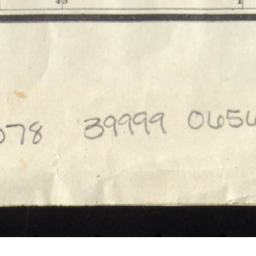 078 39999 0656